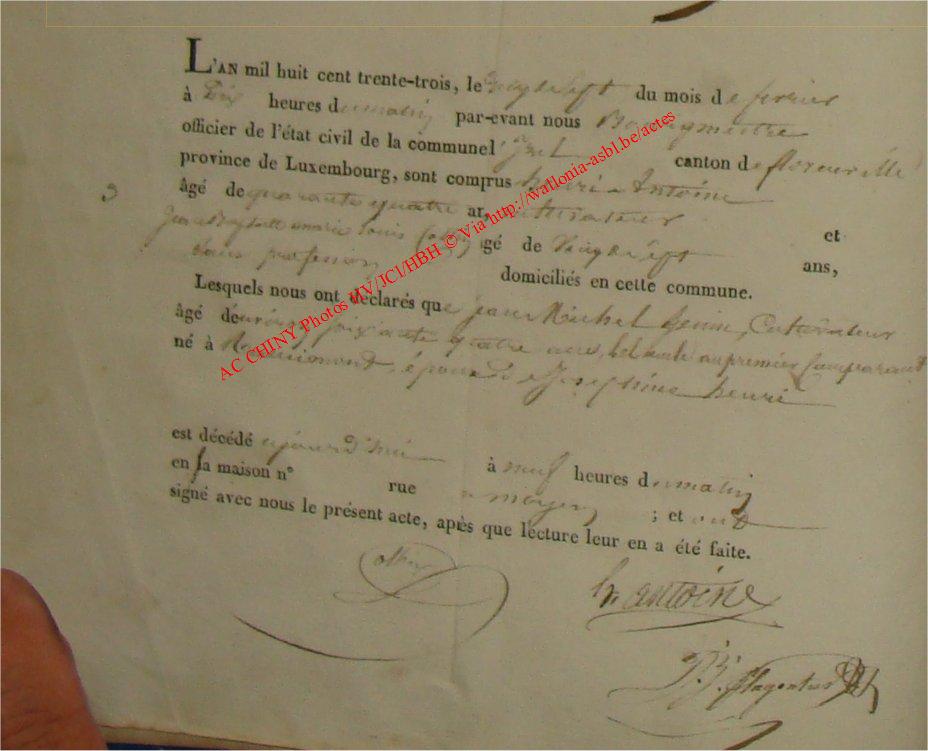 L'AN mil huit cent trente-trois, le vingt sept du mois de fevrier
à Dix heures du matin par-evant nous Bourgmestre
officier de l'état civil de la commune d' Izel canton de florenville
province de Luxembourg, sont comprus henri Antoine
âgé de quarante quatre an, cultivateur et
Jean Baptiste marie Louis âgé de vingt sept ans,
sans profession domiciliés en cette commune.
Lesquels nous ont déclarés que jean Michel Genin, Cultivateur
âgé de soixante quatre ans, bel oncle au premier Comparant
né à époux de Josephine henri
est décédé aujourd'hui à neuf heures du matin
en sa maison n° rue a moyen ; et ont
signé avec nous le présent acte, après que lecture leur en a été faite.
h. antoine
AC CHINY Photos HV/JC1/HBH © Via http://wallonia-asbl.be/actes